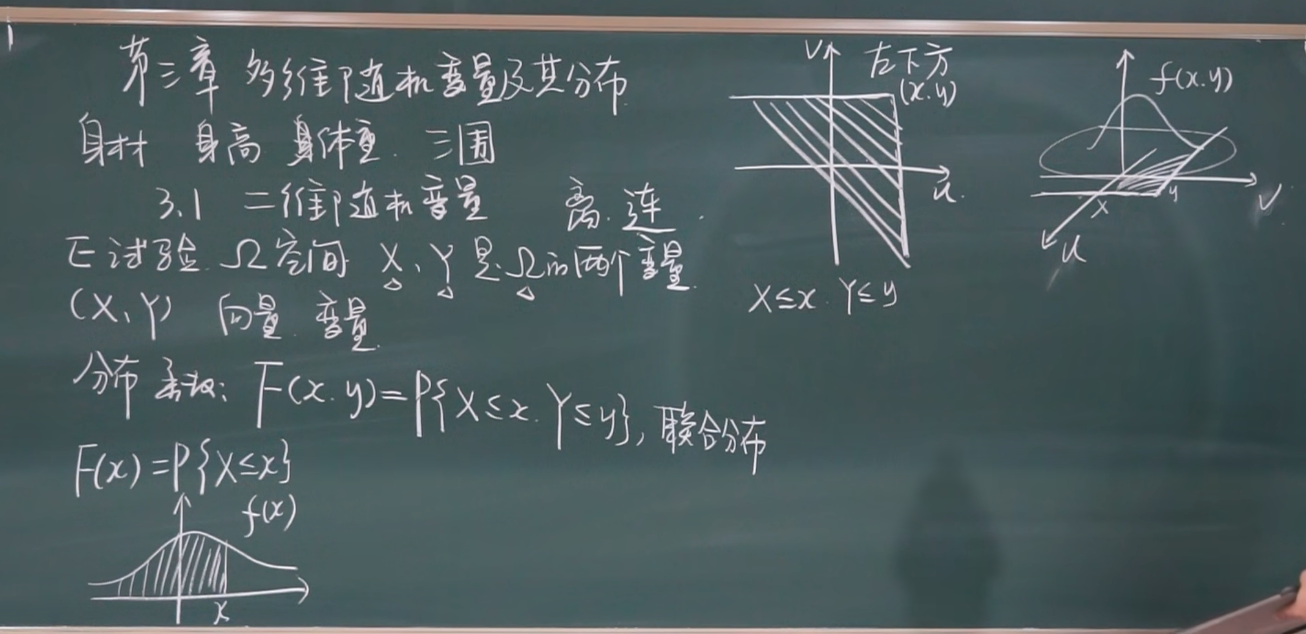 第三章 多维随机变量及其分布
身材 身高 身体重. 三围
3.1 二维随机变量 离.连.
E试验 Ω空间 X、Y是Ω的两个变量
(X、Y) 向量 变量
分布函数: F(x.y)=P{X≤x. Y≤y}, 联合分布
F(x)=P{X≤x}
f(x)
x
v 左下方
(x.y)
u.
X≤x. Y≤y
f(x.y)
x y v
u